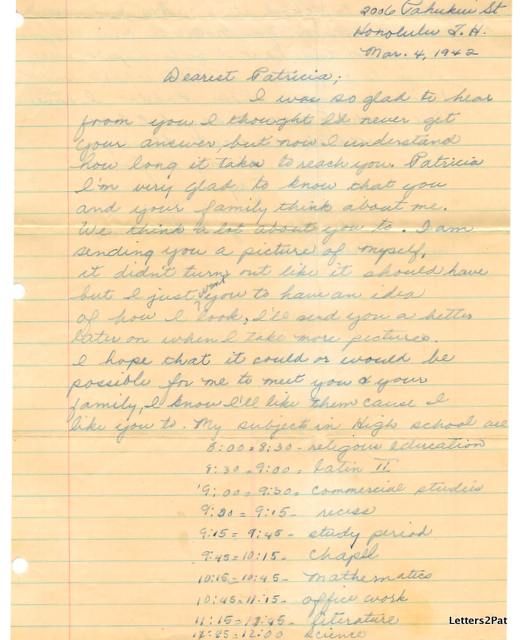 2006 Pahukui St
Honolulu T. H.
Mar. 4, 1942
Dearest Patricia;
I was so glad to hear
from you I thought I'd never get
your answer, but now I understand
how long it takes to reach you. Patricia
I'm very glad to know that you
and your family think about me.
We think a lot about you to. I am
sending you a picture of myself,
it didn't turn out like it should have
but I just want you to have an idea
of how I look, I'll send you a better
later on when I take more pictures.
I hope that it could or would be
possible for me to meet you & your
family, I know I'll like them cause I
like you to. My subjects in High school are
8:00-8:30 - religious education
8:30-9:00 - Latin II.
9:00-9:30 - commercial studies
9:15 - recess
9:15-9:45 - study period
9:45-10:15 - chapel
10:15-10:45 - mathematics
10:45-11:15 - office work
11:15 - literature
12:00 science
Letters2Pat